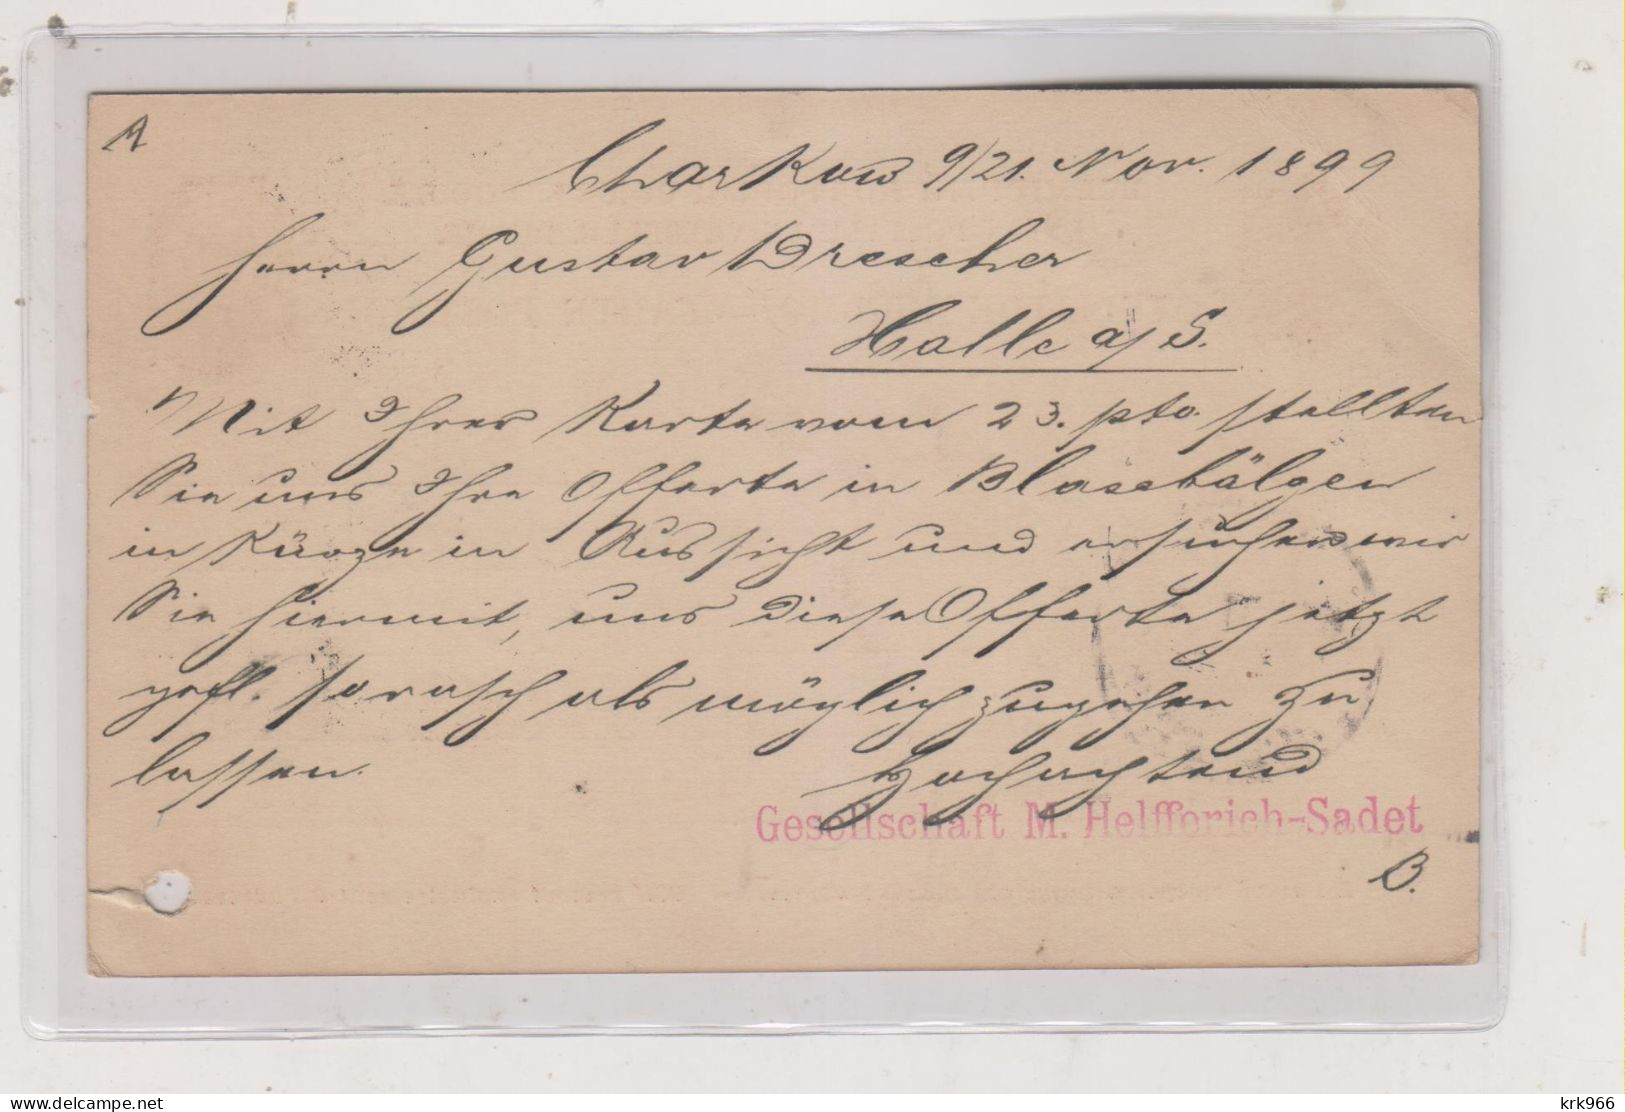 A
Charkow 9/21. Nov. 1899
Herrn Gustav Drescher
Halle a/S.
Mit Ihrer Karte vom 23. pto. stellten
Sie uns Ihre Offerte in Blasebälgen
in Kürze in Aussicht und ersuchen wir
Sie hiermit, uns diese Offerte jetzt
gefl. so rasch als möglich zugehen zu
lassen.
Hochachtend
Gesellschaft M. Helfferich-Sadet
B.
krk966